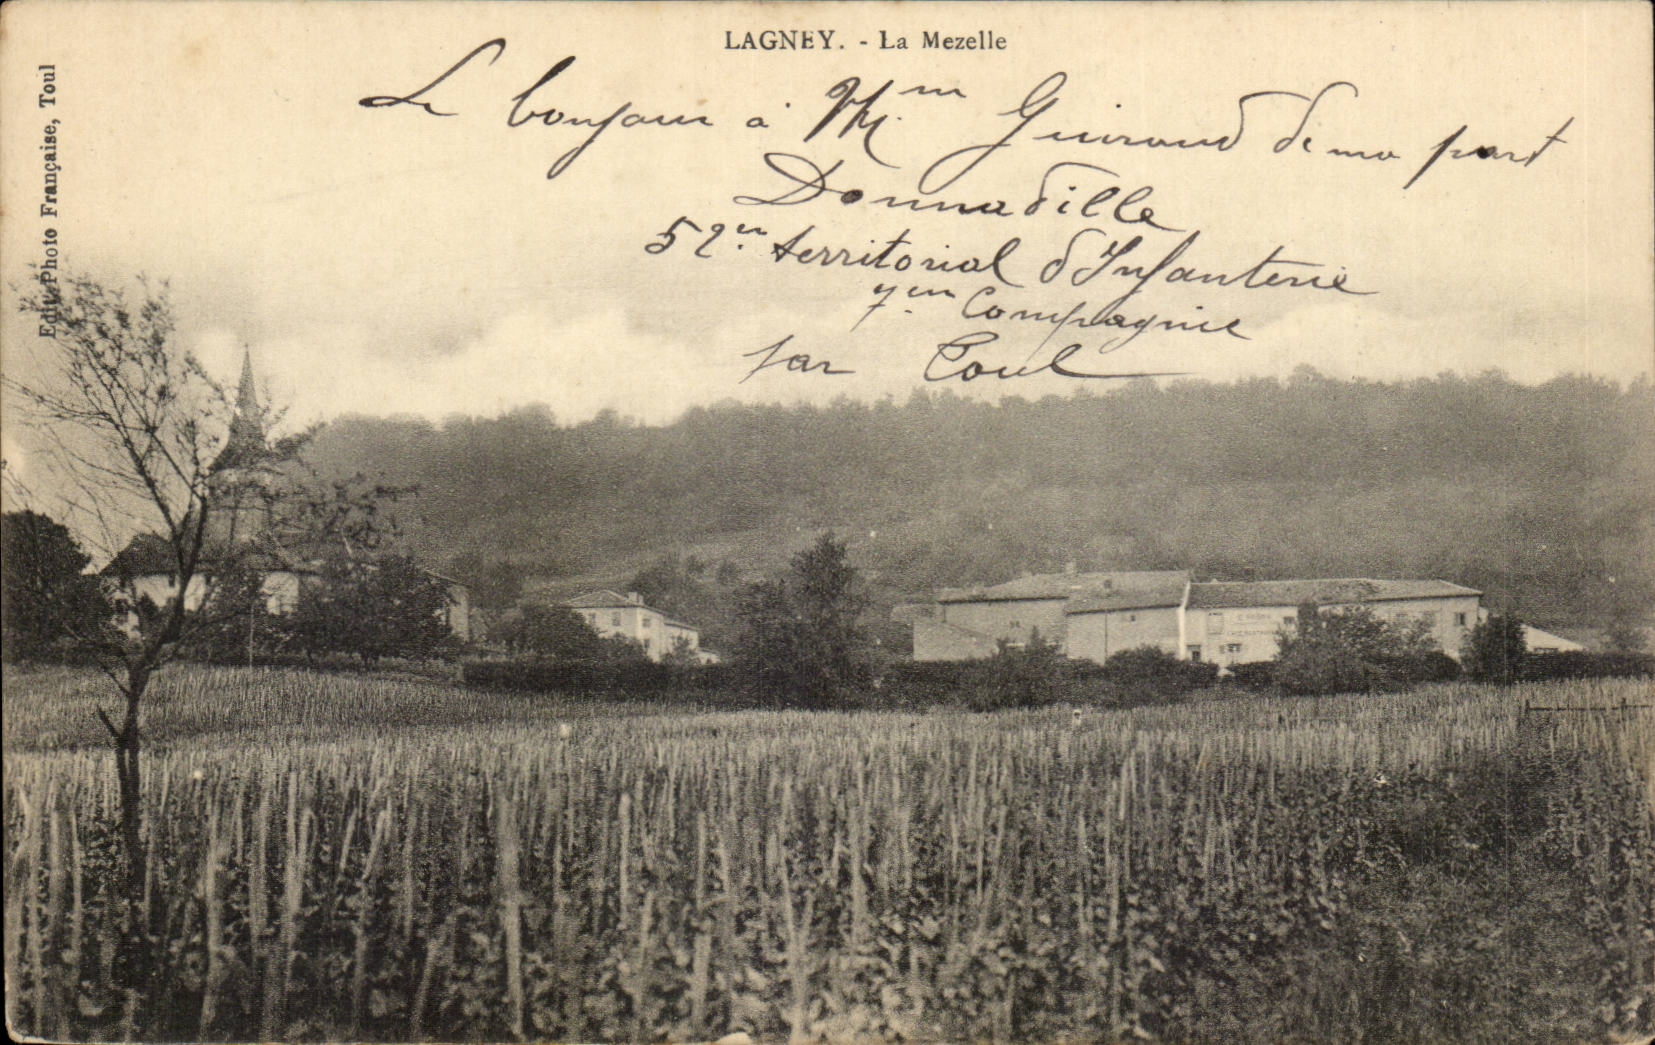 LAGNEY. - La Mezelle
Edit. Photo Française, Toul
Le bonjour à Mm Guiraud de ma part
Donnadille
52em territorial d'Infanterie
7em Compagnie
par Toul